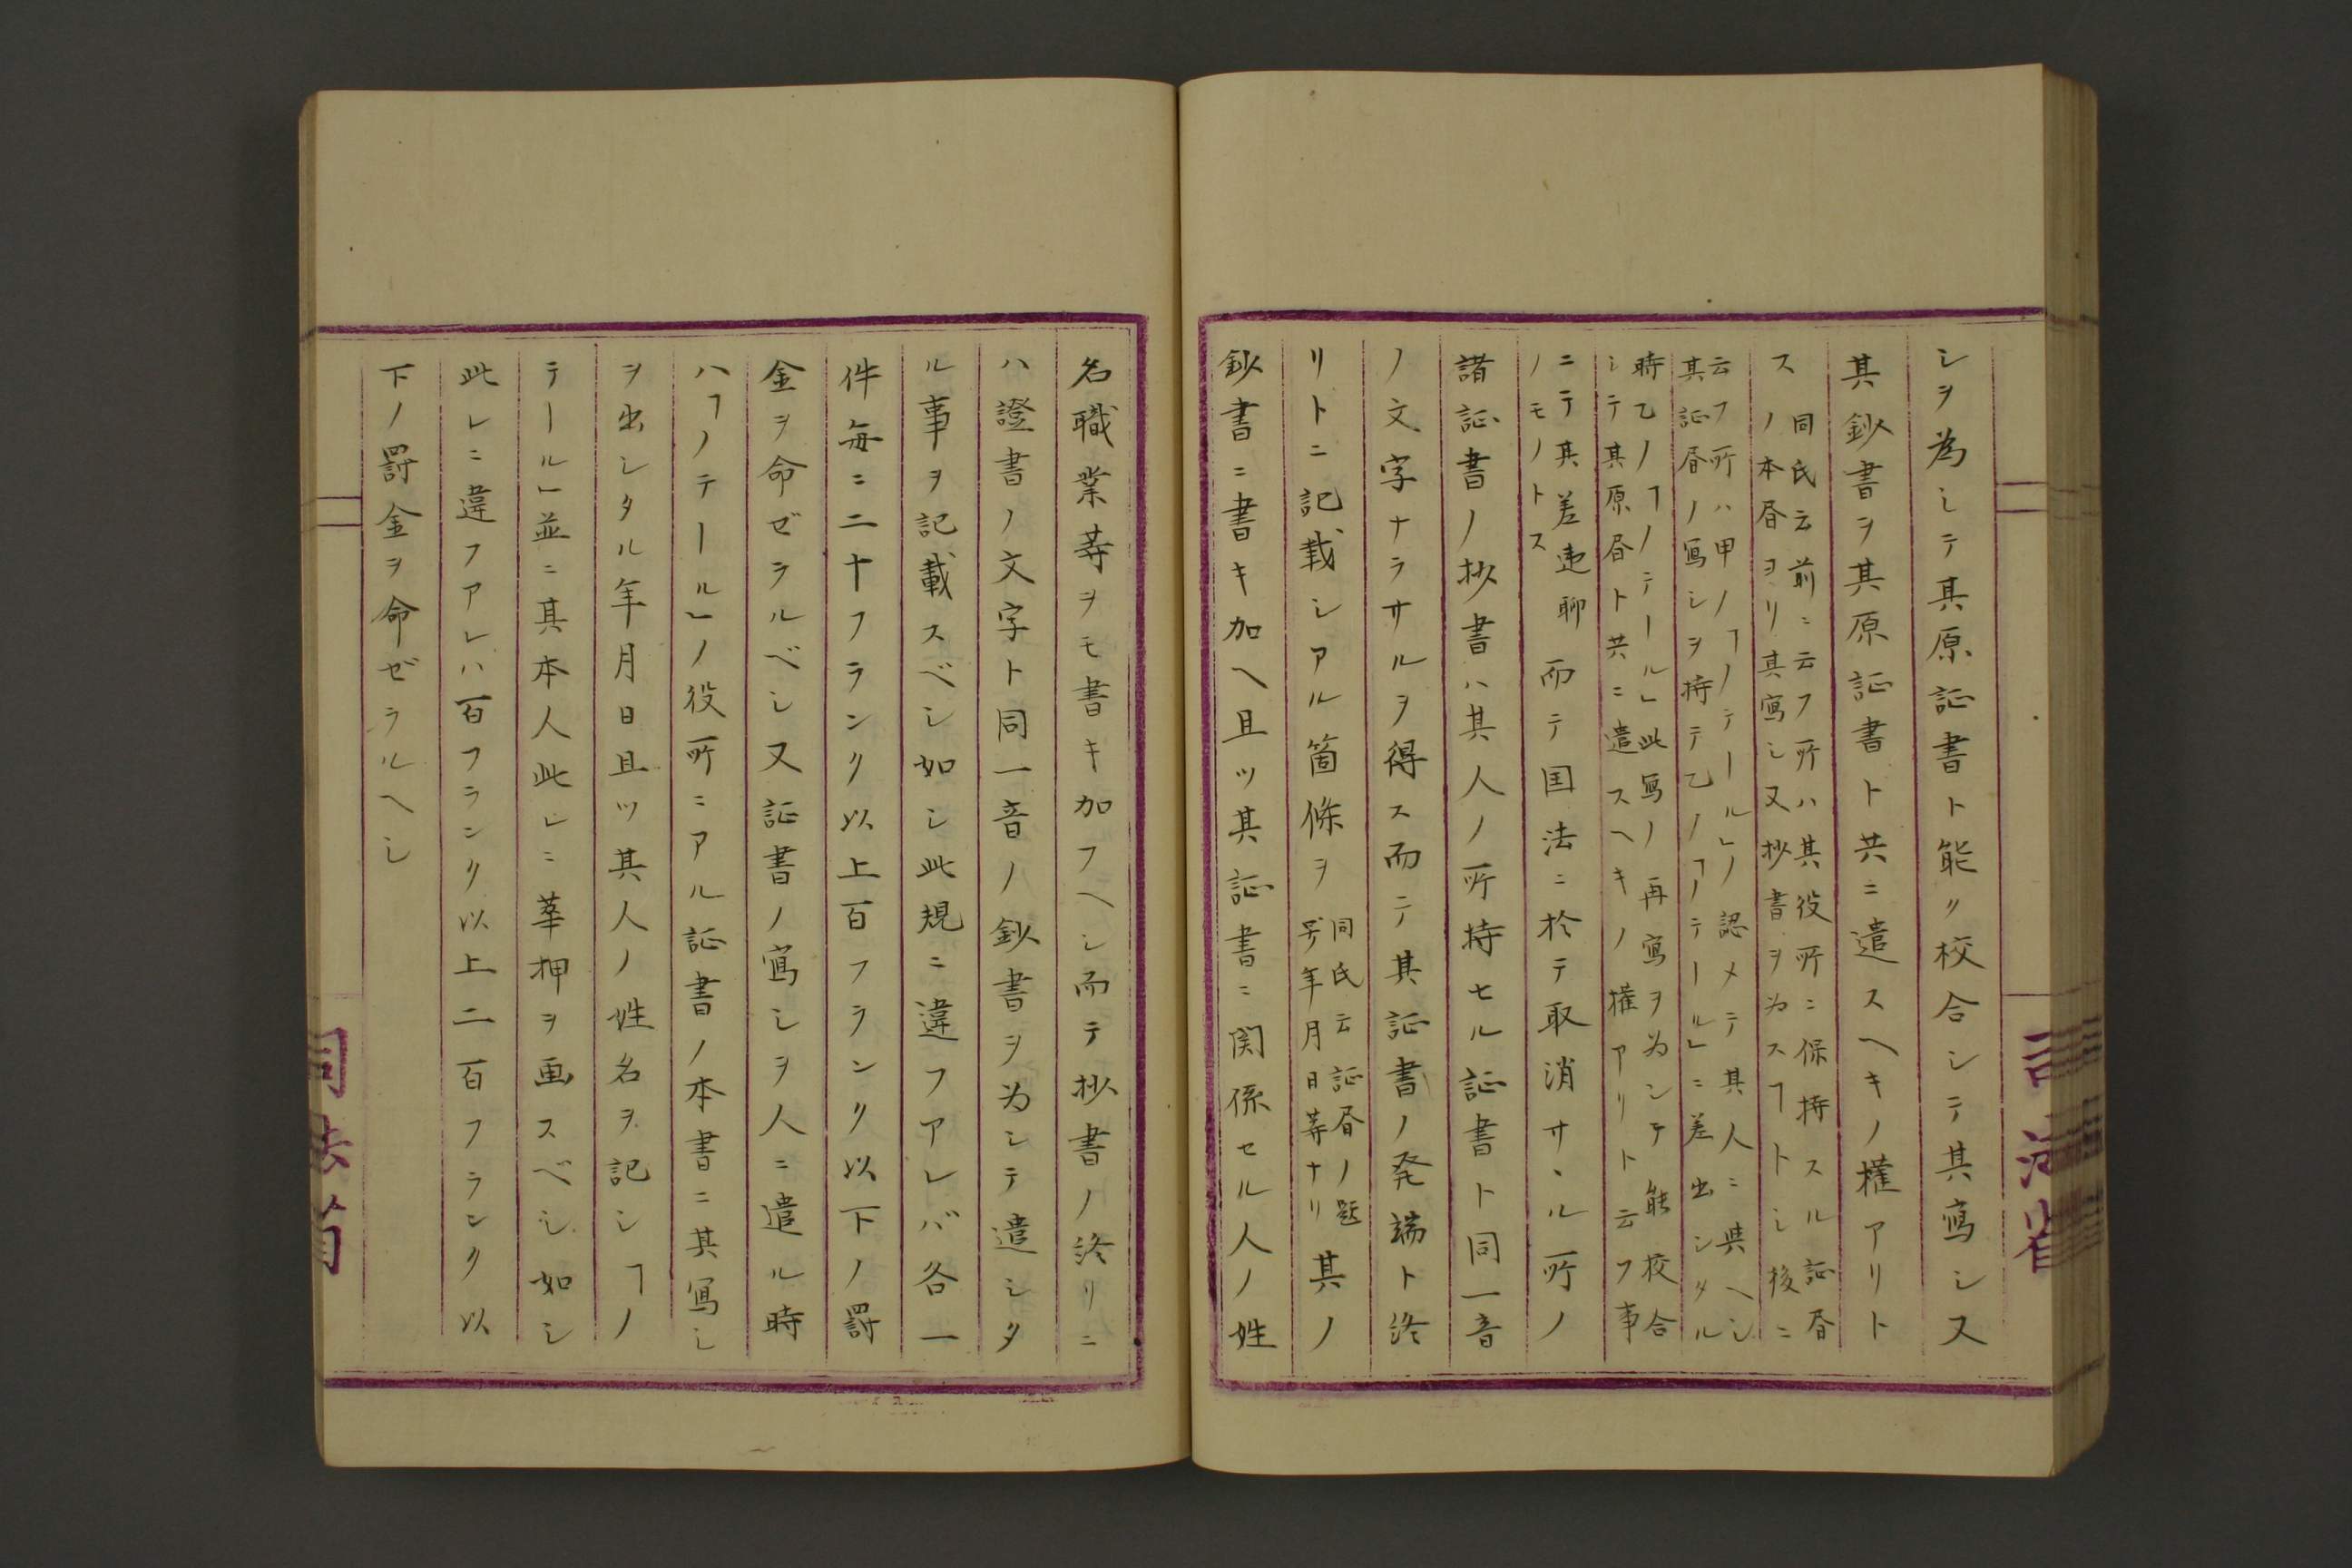 シヲ為シテ其原証書ト能ク校合シテ其寫シス
其鈔書ヲ其原証書ト共ニ遣スヘキノ權アリト
ス
同氏云前ニ云フ所ハ其役所ニ保持スル証昏
ノ本昏ヨリ其寫シ又抄書ヲ為スヿトシ後ニ
云フ所ハ甲ノ「ノテール」ノ認メテ其人ニ與ヘシ
其証昏ノ寫シヲ持テ乙ノ「ノテール」ニ差出シタル
時乙ノ「ノテール」此写ノ再寫ヲ為シテ能校合
シテ其原昏ト共ニ遣スヘキノ權アリト云フ事
ニテ其差違聊
ノモノトス
而テ国法ニ於テ取消サヽル所ノ
諸証書ノ抄書ハ其人ノ所持セル証書ト同一音
ノ文字ナラサルヲ得ス而テ其証書ノ発端ト終
リトニ記載シアル箇條ヲ
同氏云証昏ノ題
号年月日等ナリ
其ノ
鈔書ニ書キ加ヘ且ツ其証書ニ関係セル人ノ姓
名職業等ヲモ書キ加フヘシ而テ抄書ノ終リニ
ハ證書ノ文字ト同一音ノ鈔書ヲ為シテ遣シタ
ル事ヲ記載スベシ如シ此規ニ違フアレバ各一
件毎ニ二十フランク以上百フランク以下ノ罰
金ヲ命ゼラルベシ又証書ノ寫シヲ人ニ遣ル時
ハ「ノテール」ノ役所ニアル証書ノ本書ニ其寫シ
ヲ出シタル年月日且ツ其人ノ姓名ヲ記シ「ノ
テール」並ニ其本人此レニ華押ヲ画スベシ如シ
此レニ違フアレハ百フランク以上二百フランク以
下ノ罰金ヲ命ゼラルヘシ
司法省